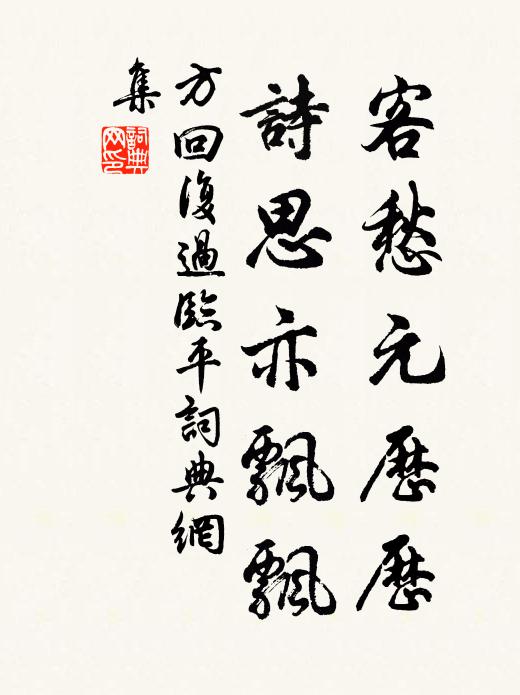 客愁元歷歷
詩思亦飄飄
方回復過臨平詞典網
集
詞典網印